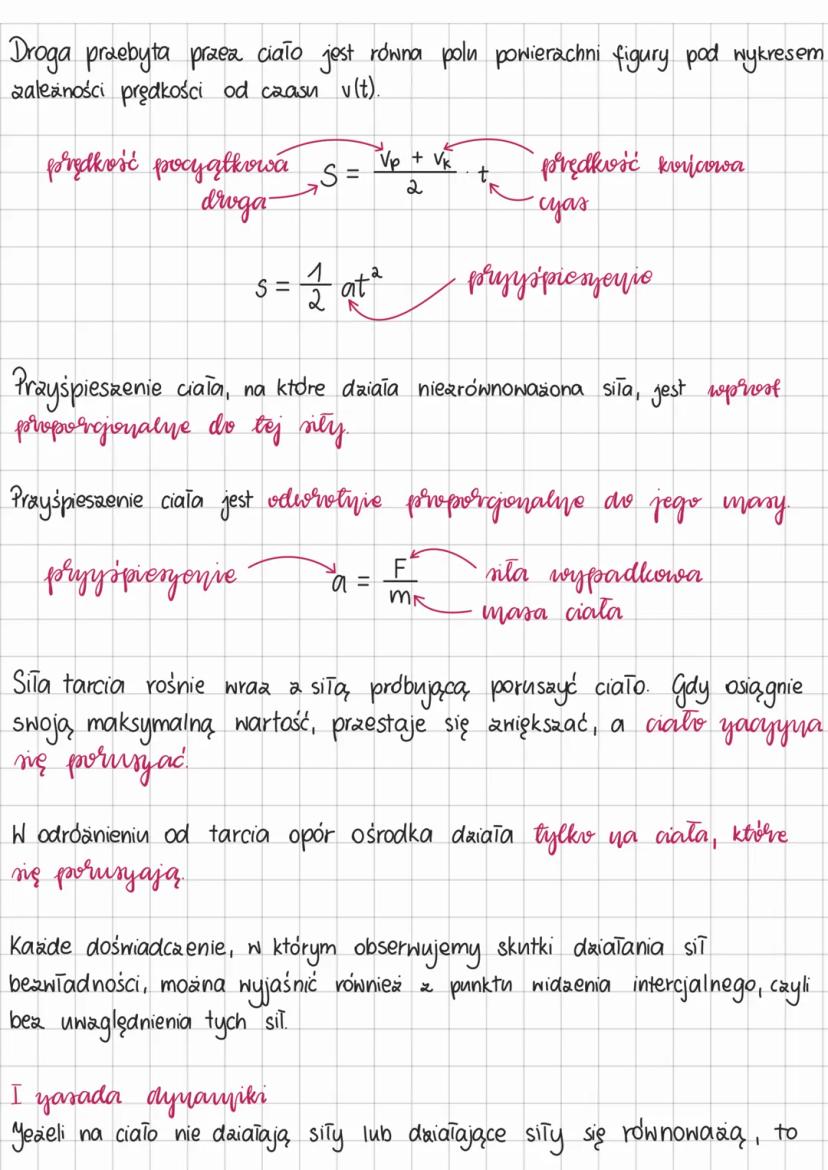 Droga przebyta przez ciało jest równa polu powierzchni figury pod wykresem
zależności prędkości od czasu v(t).
prędkość początkowa
droga
S = (Vp + Vk)/2 · t
prędkość końcowa
czas
s = 1/2 at²
przyśpieszenie
Przyśpieszenie ciała, na które działa niezrównoważona siła, jest wprost
proporcjonalne do tej siły.
Przyśpieszenie ciała jest odwrotnie proporcjonalne do jego masy.
przyśpieszenie
a = F/m
siła wypadkowa
masa ciała
Siła tarcia rośnie wraz z siłą próbującą poruszyć ciało. Gdy osiągnie
swoją maksymalną wartość, przestaje się zwiększać, a ciało zaczyna
się poruszać.
W odróżnieniu od tarcia opór ośrodka działa tylko na ciała, które
się poruszają.
Każde doświadczenie, w którym obserwujemy skutki działania sił
bezwładności, można wyjaśnić również z punktu widzenia intercjalnego, czyli
bez uwzględnienia tych sił.
I zasada dynamiki
Jeżeli na ciało nie działają siły lub działające siły się równoważą, to